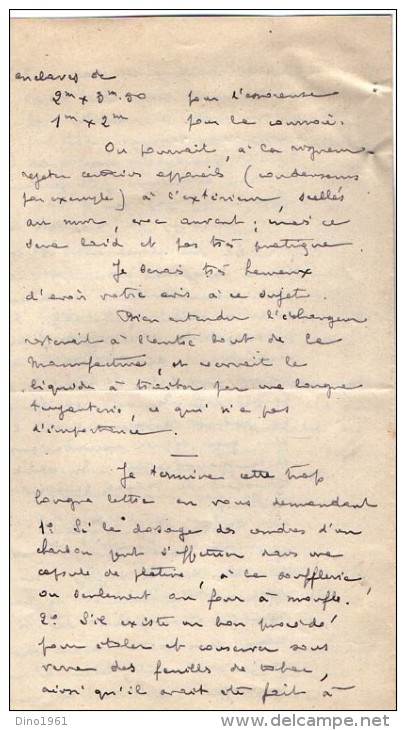 enclaves de
2m x 3m.50 pour l'essoreuse
1m x 2m pour la
On pourrait, à la rigueur
rejeter certains appareils (condenseurs
par exemple) à l'extérieur, scellés
au mur, avec auvent; mais ce
sera laid et pas très pratique.
Je serais très heureux
d'avoir votre avis à ce sujet.
Bien entendu l'échangeur
resterait à l'autre bout de la
Manufacture, et recevrait le
liquide à traiter par une longue
tuyauterie, ce qui n'a pas
d'importance.
Je termine cette trop
longue lettre en vous demandant
1º Si le dosage des cendres d'un
charbon peut s'effectuer dans une
capsule de platine, à la soufflerie,
ou seulement au four à moufle.
2º S'il existe un bon procédé
pour étaler et conserver sous
verre des feuilles de tabac,
ainsi qu'il avait été fait à
Dino1961